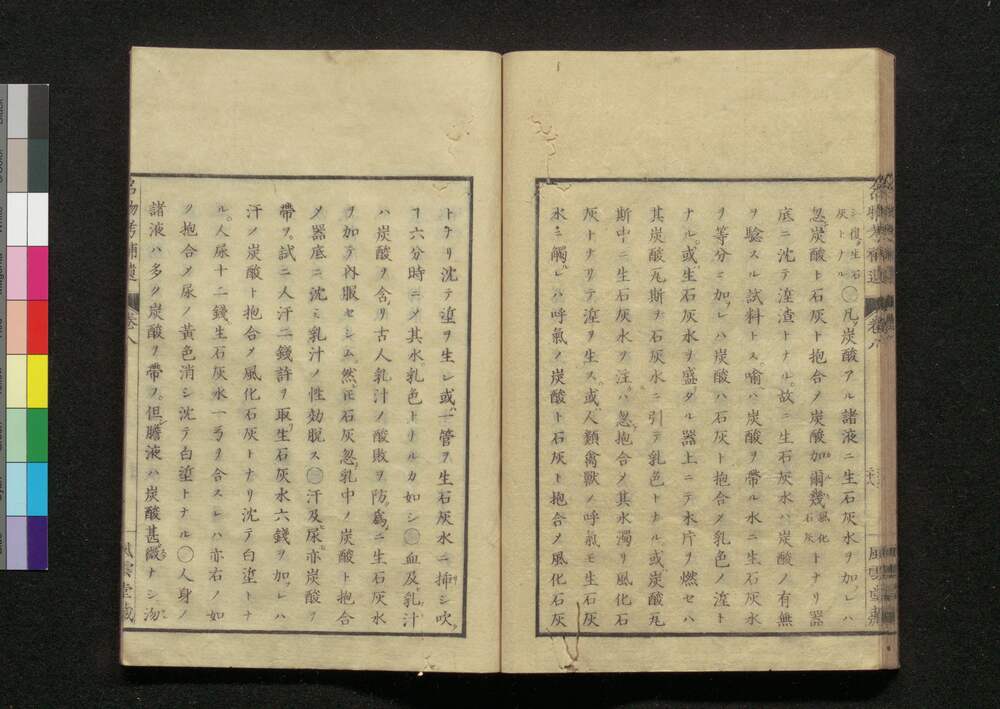 シ復タ生石
灰トナル○凡炭酸アル諸液ニ生石灰水ヲ加フレハ
忽炭酸ト石灰ト抱合メ炭酸加爾幾風化石灰トナリ器
底ニ沈テ滓渣トナル故ニ生石灰水ハ炭酸ノ有無
ヲ驗スル試料トス喻ハ炭酸ヲ帶ル水ニ生石灰水
ヲ等分ニ加フレハ炭酸ハ石灰ト抱合メ乳色ノ滓ト
ナル或生石灰水ヲ盛タル器上ニテ木片ヲ燃セハ
其炭酸瓦斯ヲ石灰水ニ引テ乳色トナル或炭酸瓦
斯中ニ生石灰水ヲ注ハ忽抱合メ其水濁リ風化石
灰トナリテ滓ヲ生ス或人類禽獸ノ呼氣モ生石灰
水ニ觸レハ呼氣ノ炭酸ト石灰ト抱合メ風化石灰
トナリ沈テ滓ヲ生シ或一管ヲ生石灰水ニ挿シ吹
ヿ六分時ニメ其水乳色トナルカ如シ○血及乳汁
ハ炭酸ヲ含リ古人乳汁ノ酸敗ヲ防爲ニ生石灰水
ヲ加テ內服セシム然モ石灰忽乳中ノ炭酸ト抱合
メ器底ニ沈ミ乳汁ノ性効脫ス○汗及尿亦炭酸ヲ
帶フ試ニ人汗二錢許ヲ取生石灰水六錢ヲ加フレハ
汗ノ炭酸ト抱合メ風化石灰トナリ沈テ白滓トナ
ル人尿十二錢生石灰水一弓ヲ合スレハ亦右ノ如
ク抱合メ尿ノ黃色消シ沈テ白滓トナル○人身ノ
諸液ハ多ク炭酸ヲ帶フ但膽液ハ炭酸甚微ナシ沕
名物考補遺 卷八 風雲堂藏